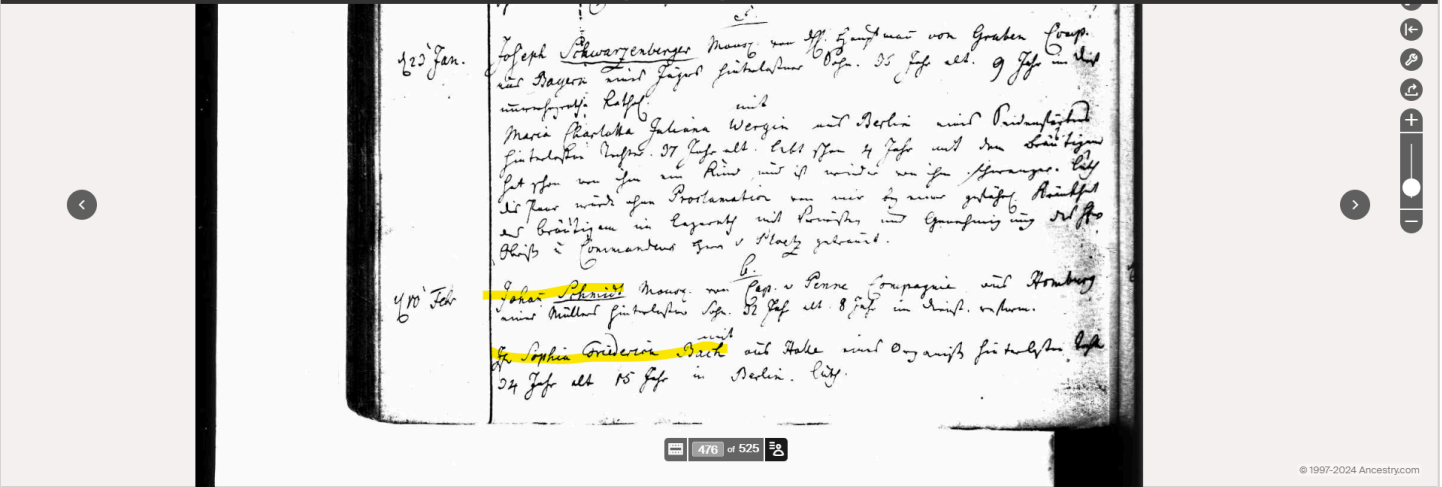 5.
d 23 Jan. Joseph Schwarzenberger Mousq. von H. Hauptman von Graben Comp.
aus Bayern eines Jägers hinterlaßner Sohn. 35 Jahr alt. 9 Jahr in
Kathol.
mit
Maria Charlotta Juliana Wergin aus Berlin eines
hinterlaßne Tochter. 37 Jahr alt. lebt schon 4 Jahr mit dem Bräutigam
hat schon von ihm ein Kind und ist wieder von ihm schwanger. Luth
Dis Paar wurde ohne Proclamation von mir bey einer gefährl. Krankheit
des Bräutigam im Lazareth mit und Genehmigung des
Obrist u Commandeur Herrn v Ploetz getraut.
6.
d 10 Febr Johan Schmidt Mousq. von Cap. v Penne Compagnie aus Homburg
eines Müllers hinterlaßner Sohn. 32 Jahr alt. 8 Jahr im Dienst. reform.
mit
Sophia Friderica Bach aus Halle eines Organist hinterlaßne Tocht
34 Jahr alt 15 Jahr in Berlin. Luth.
476 of 525
© 1997-2024 Ancestry.com